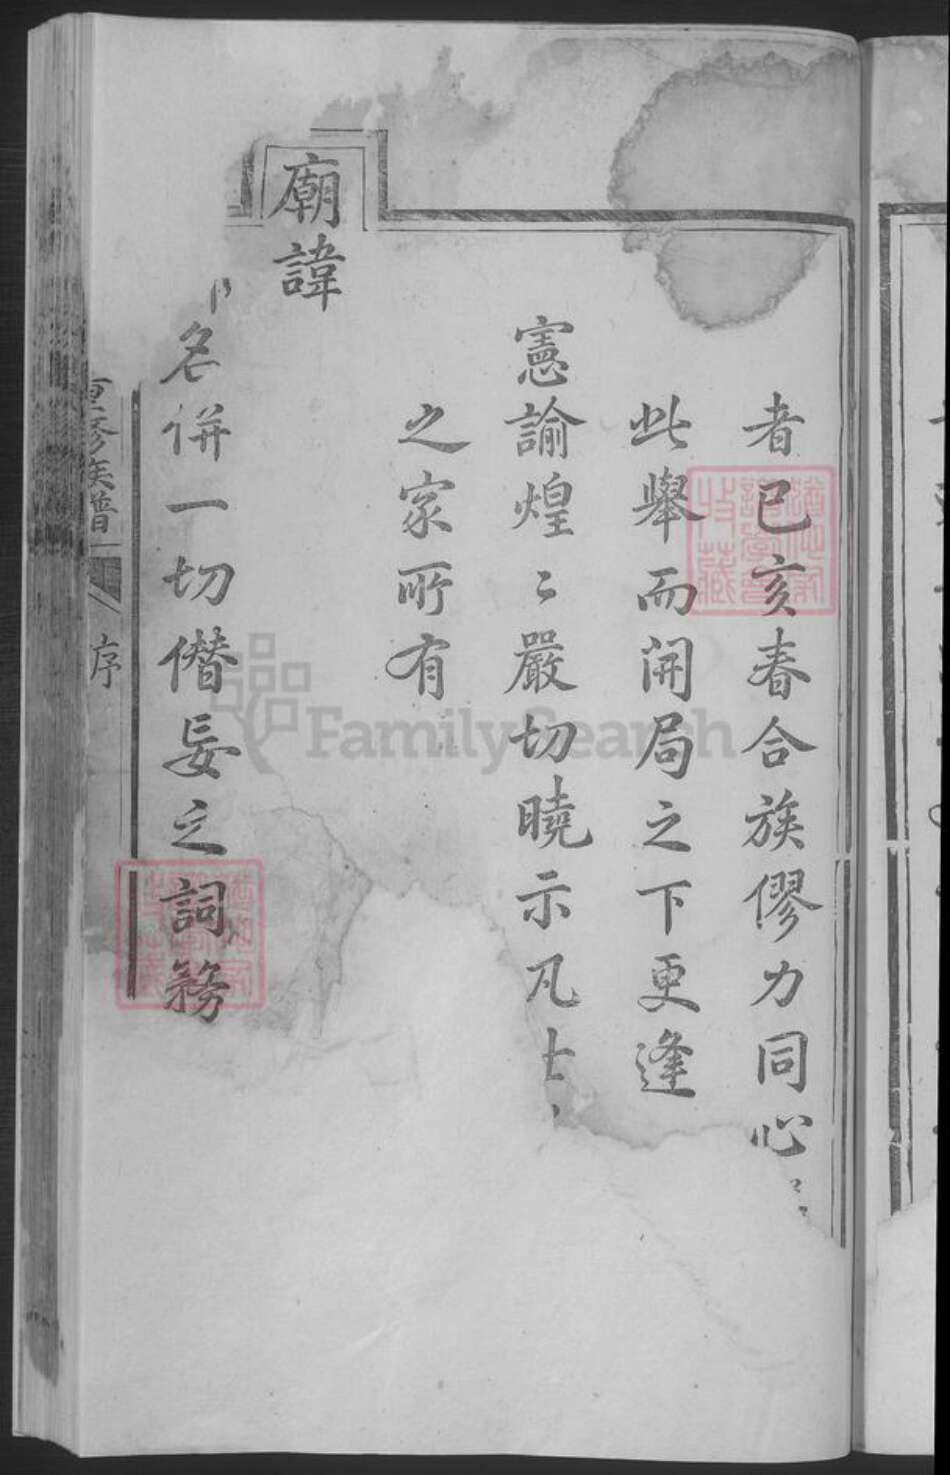 者已亥春合族僇力同心
此舉而開局之下更逢
憲諭煌〻嚴切曉示凡士
之家所有
廟諱
名併一切僭妄之詞務
重修族譜
序
FamilySearch